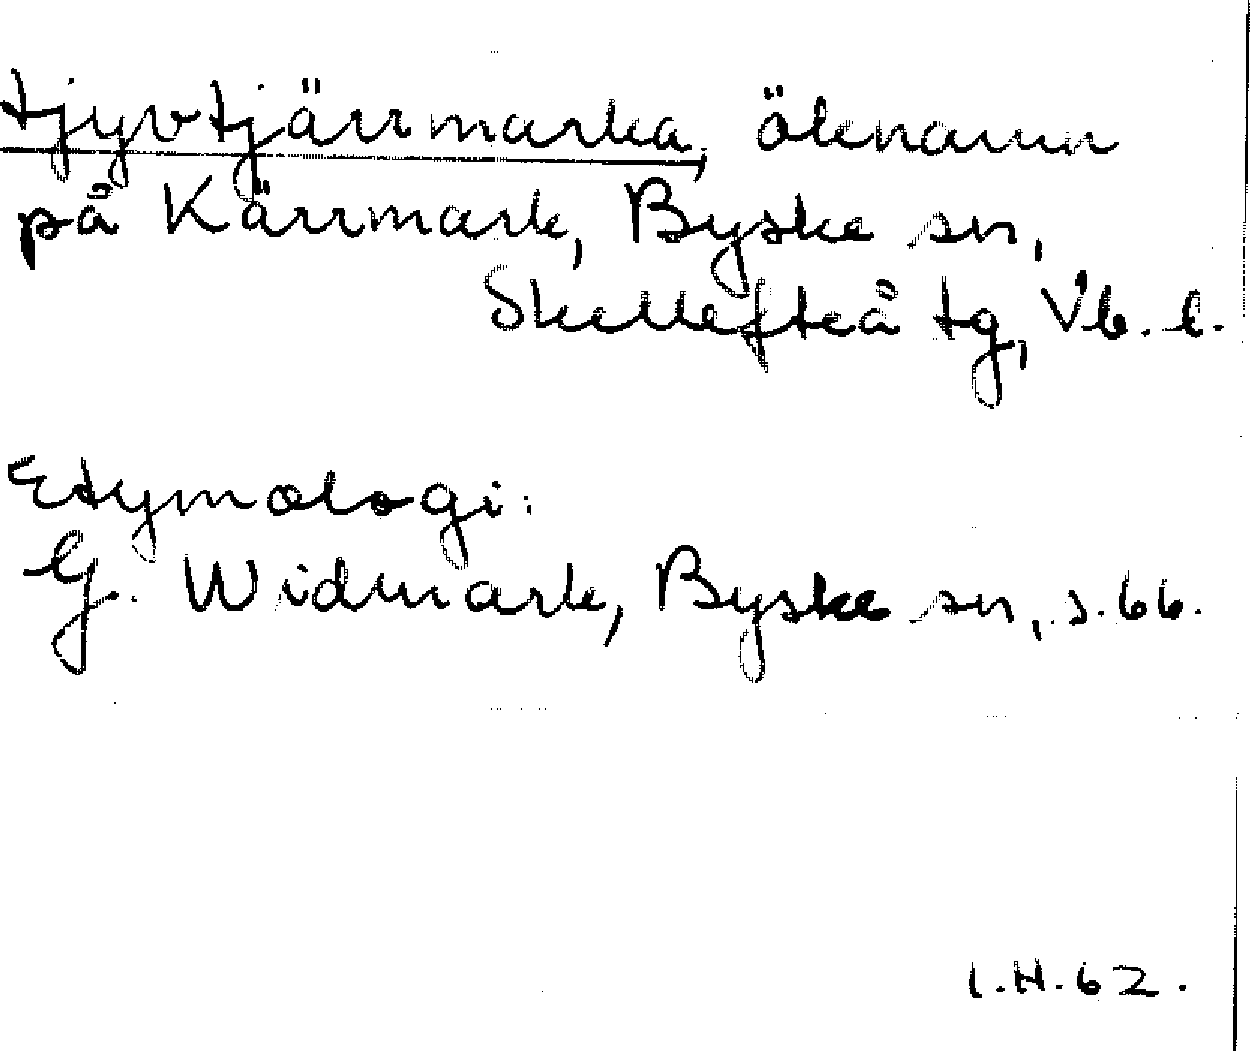 tjyvtjärrmarka, öknamn
på Kärrmark, Byske sn,
Skellefteå tg, Vb. l.
Etymologi:
G. Widmark, Byske sn, s. 66.
I.H. 62.